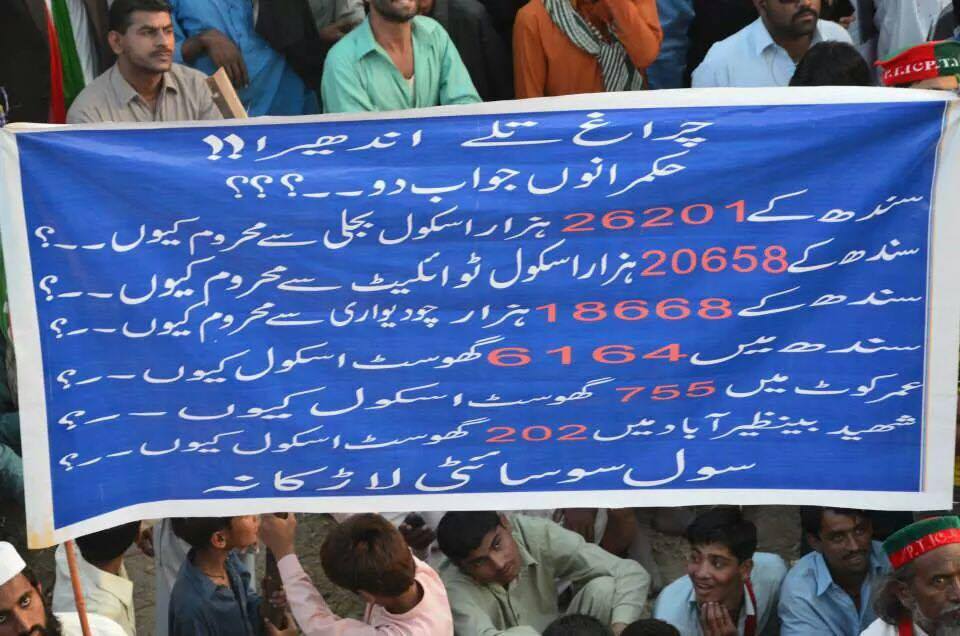 چراغ تلے اندھیرا!!
حکمرانوں جواب دو۔۔؟؟؟
سندھ کے 26201 ہزار اسکول بجلی سے محروم کیوں۔۔؟
سندھ کے 20658 ہزار اسکول ٹوائلیٹ سے محروم کیوں۔۔؟
سندھ کے 18668 ہزار چودیواری سے محروم کیوں۔۔؟
سندھ میں 6164 گھوسٹ اسکول کیوں۔۔؟
عمرکوٹ میں 755 گھوسٹ اسکول کیوں۔۔؟
شھید بینظیر آباد میں 202 گھوسٹ اسکول کیوں۔۔؟
سول سوسائٹی لاڑکانہ